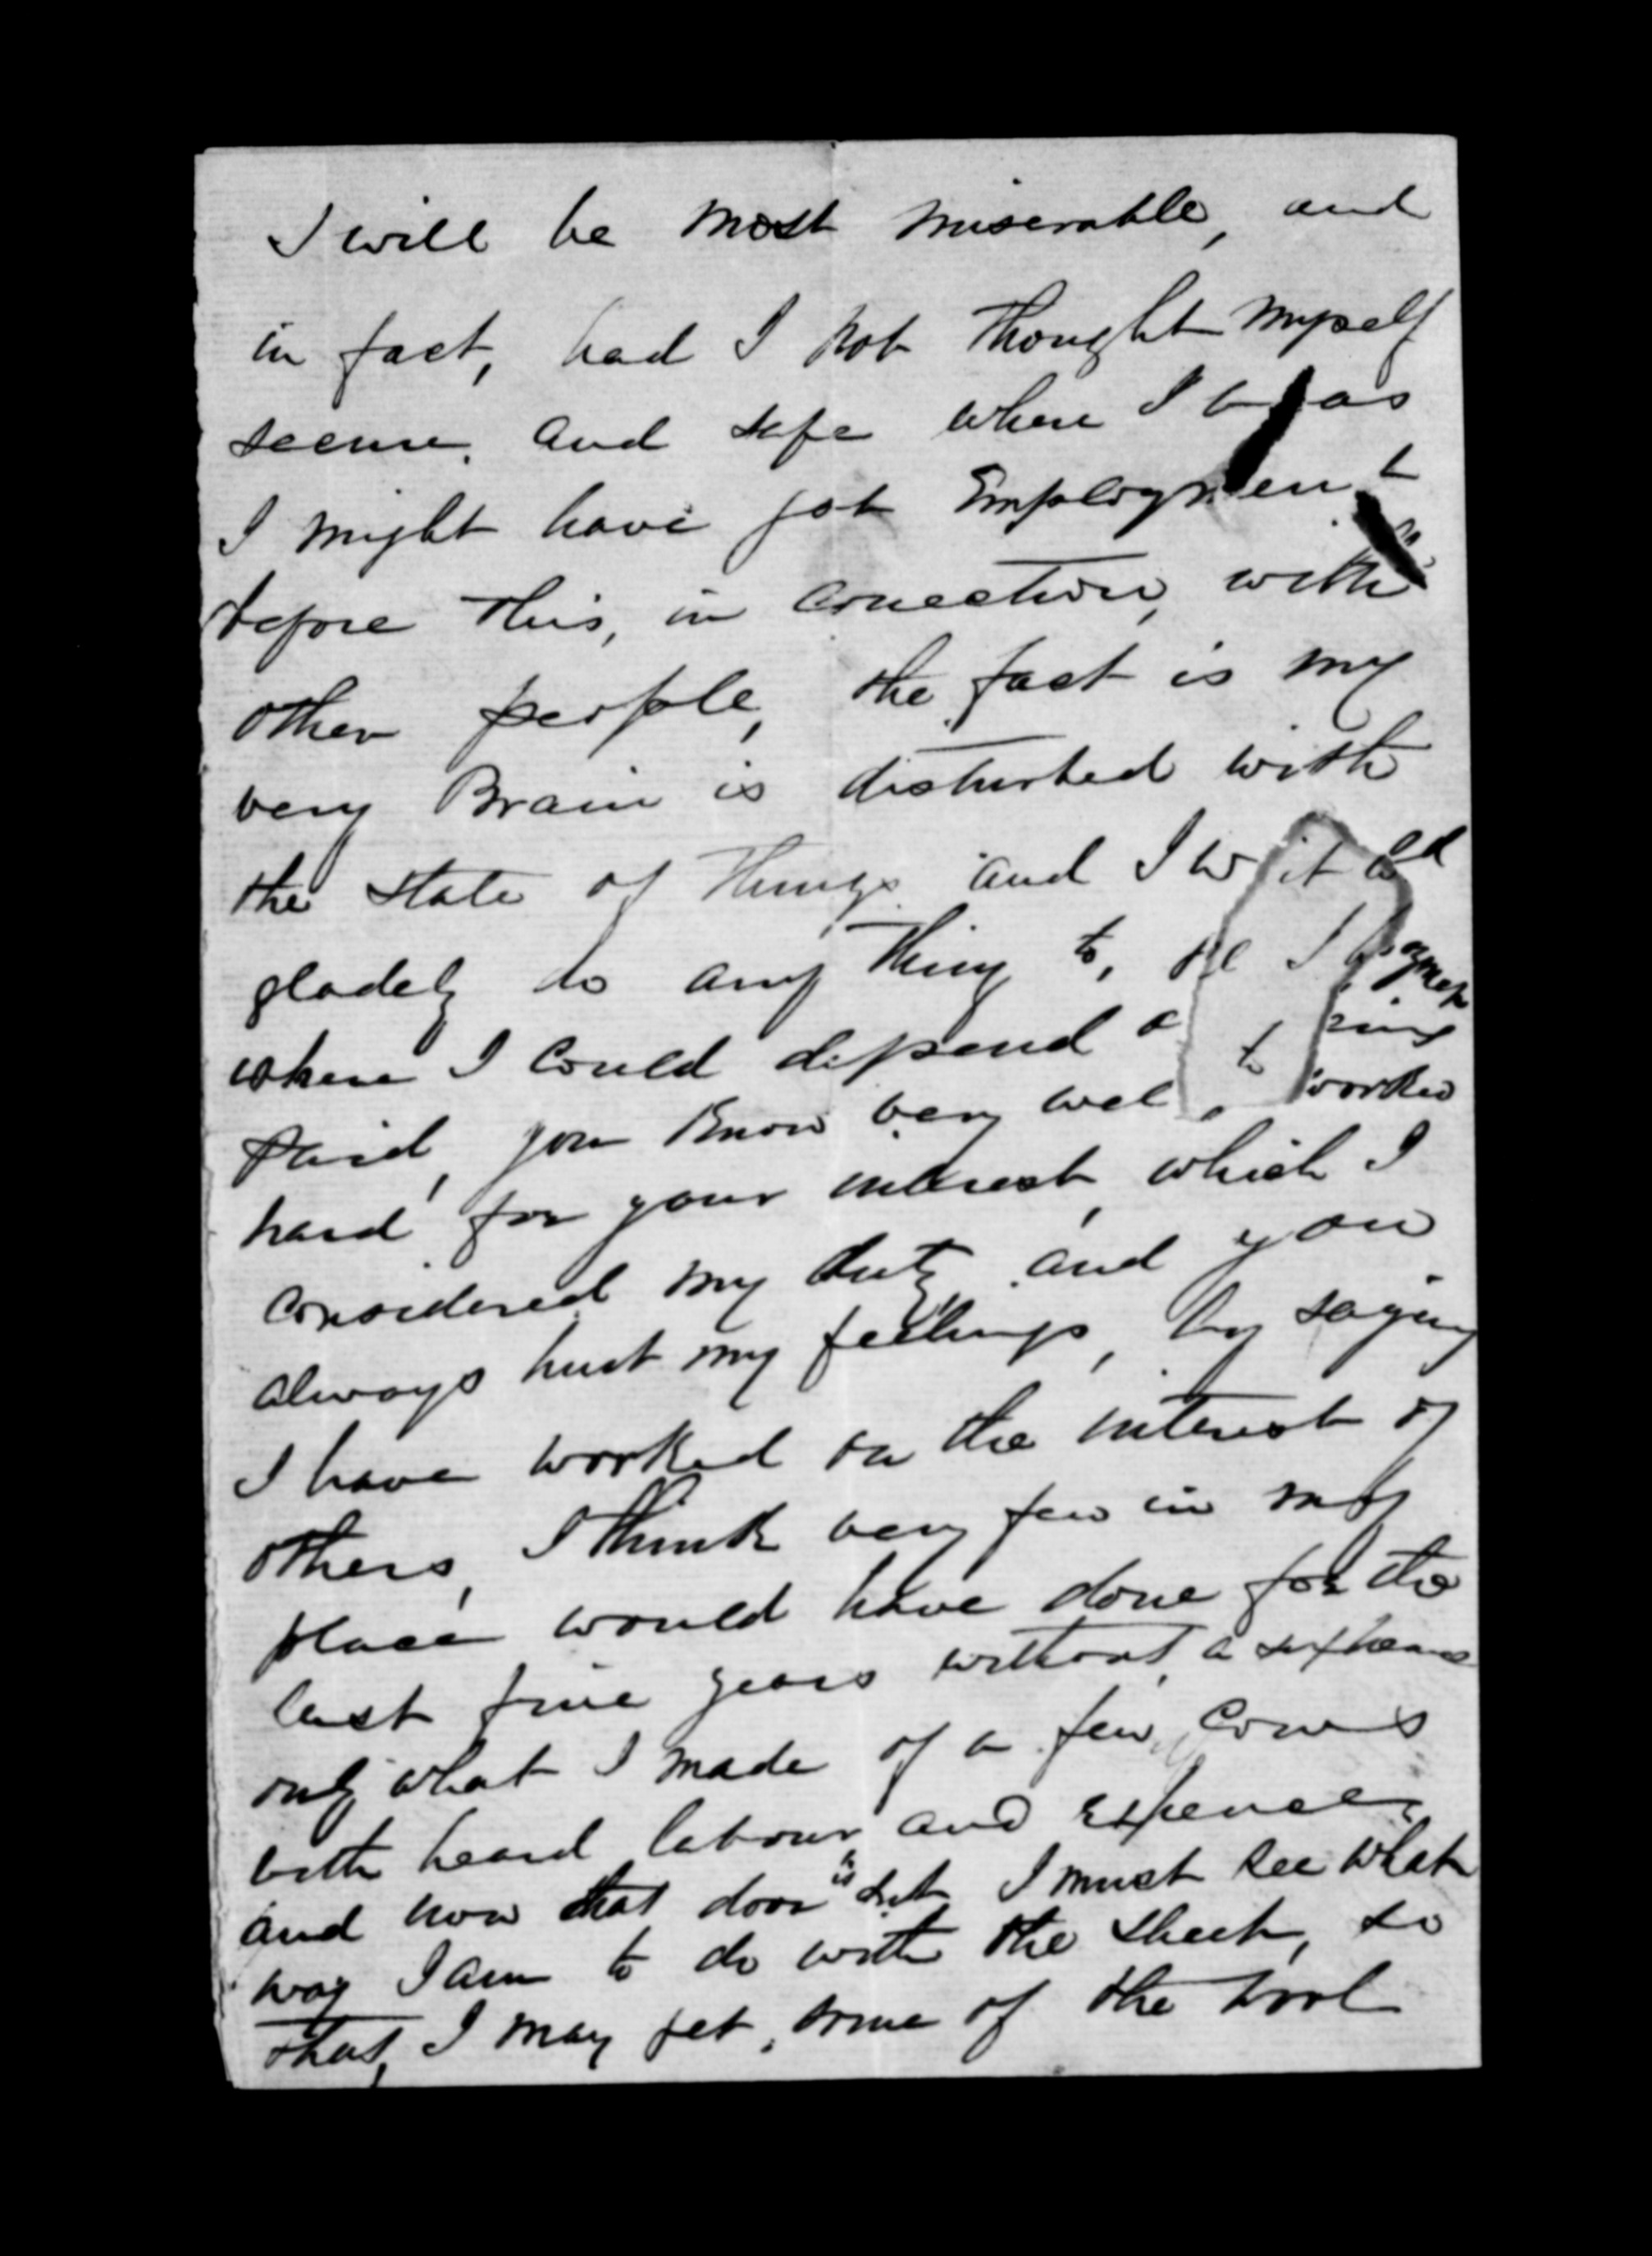 I will be most miserable, and
in fact, had I not thought myself
secure. and safe where I was
I might have got Employment
before this, in conection, with
other people, the fact is my
very Brain is disturbed with
the state of things and I
gladely do any thing to,
where I could depend
paid, you know very wel worked
hard for your interest, which I
considered my duty, and you
always hurt my feelings, by saying
I have worked on the interest of
others, I think very few in my
place would have done for the
last five years without, a sixpence
only what I made of a few, Cows
with heard labour, and expences
and now that door is shut I must see what
way I am to do with the sheep, so
that, I may get, some of the wool